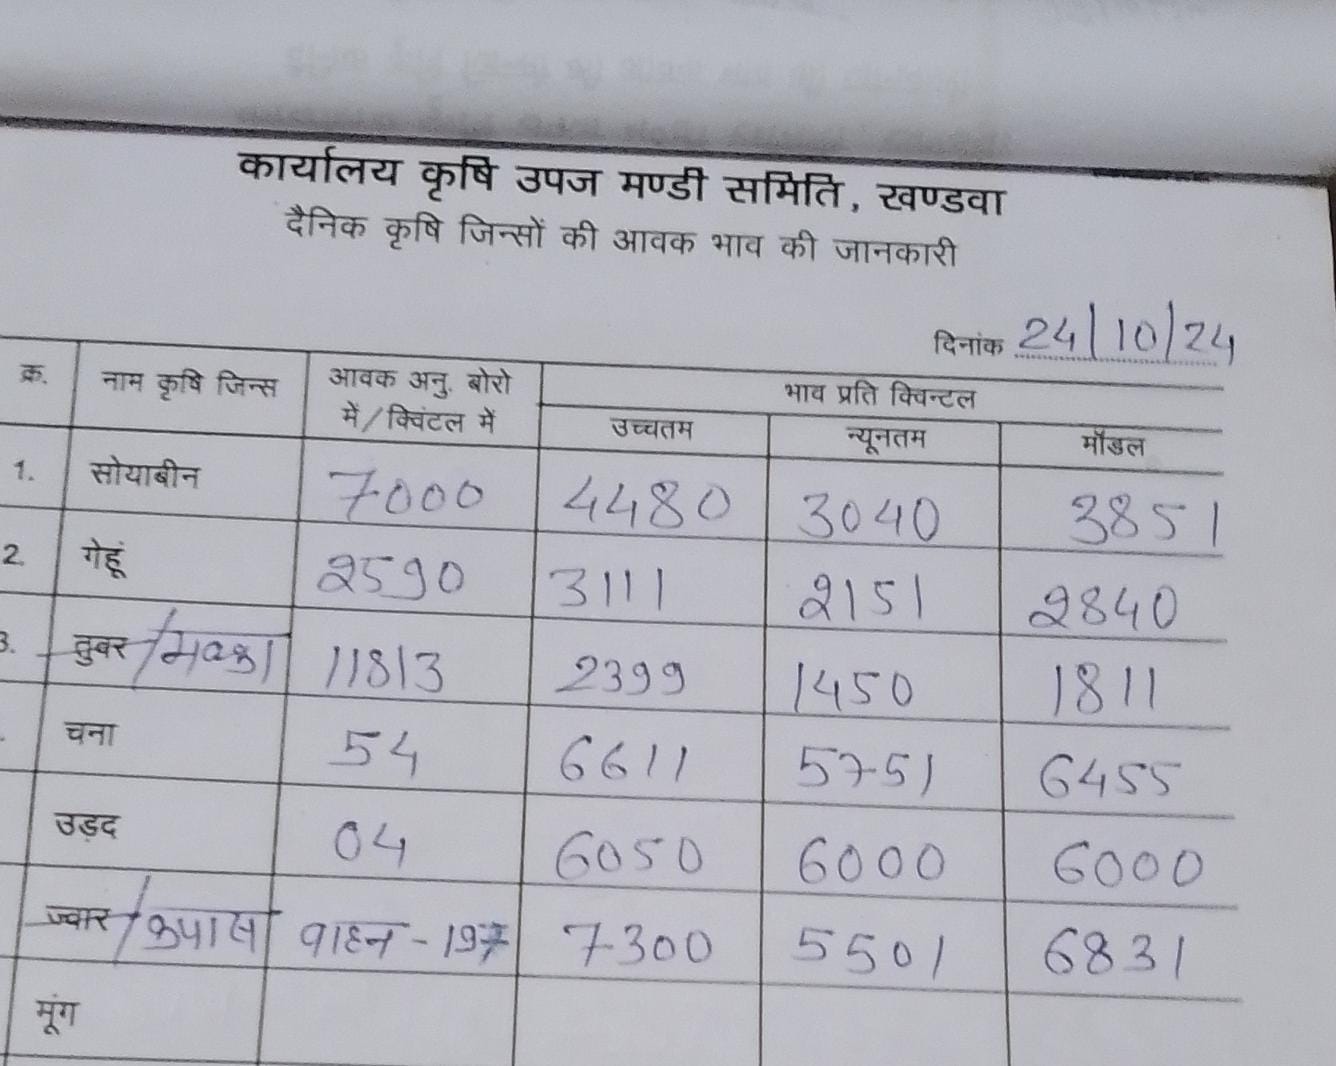 कार्यालय कृषि उपज मण्डी समिति, खण्डवा
दैनिक कृषि जिन्सों की आवक भाव की जानकारी
दिनांक 24/10/24
क्र. नाम कृषि जिन्स आवक अनु. बोरो में/क्विंटल में भाव प्रति क्विन्टल
उच्चतम न्यूनतम मॉडल
1. सोयाबीन 7000 4480 3040 3851
2. गेहूं 2590 3111 2151 2840
3. तुवर/मक्का 11813 2399 1450 1811
चना 54 6611 5751 6455
उड़द 04 6050 6000 6000
ज्वार/कपास वाहन - 197 7300 5501 6831
मूंग